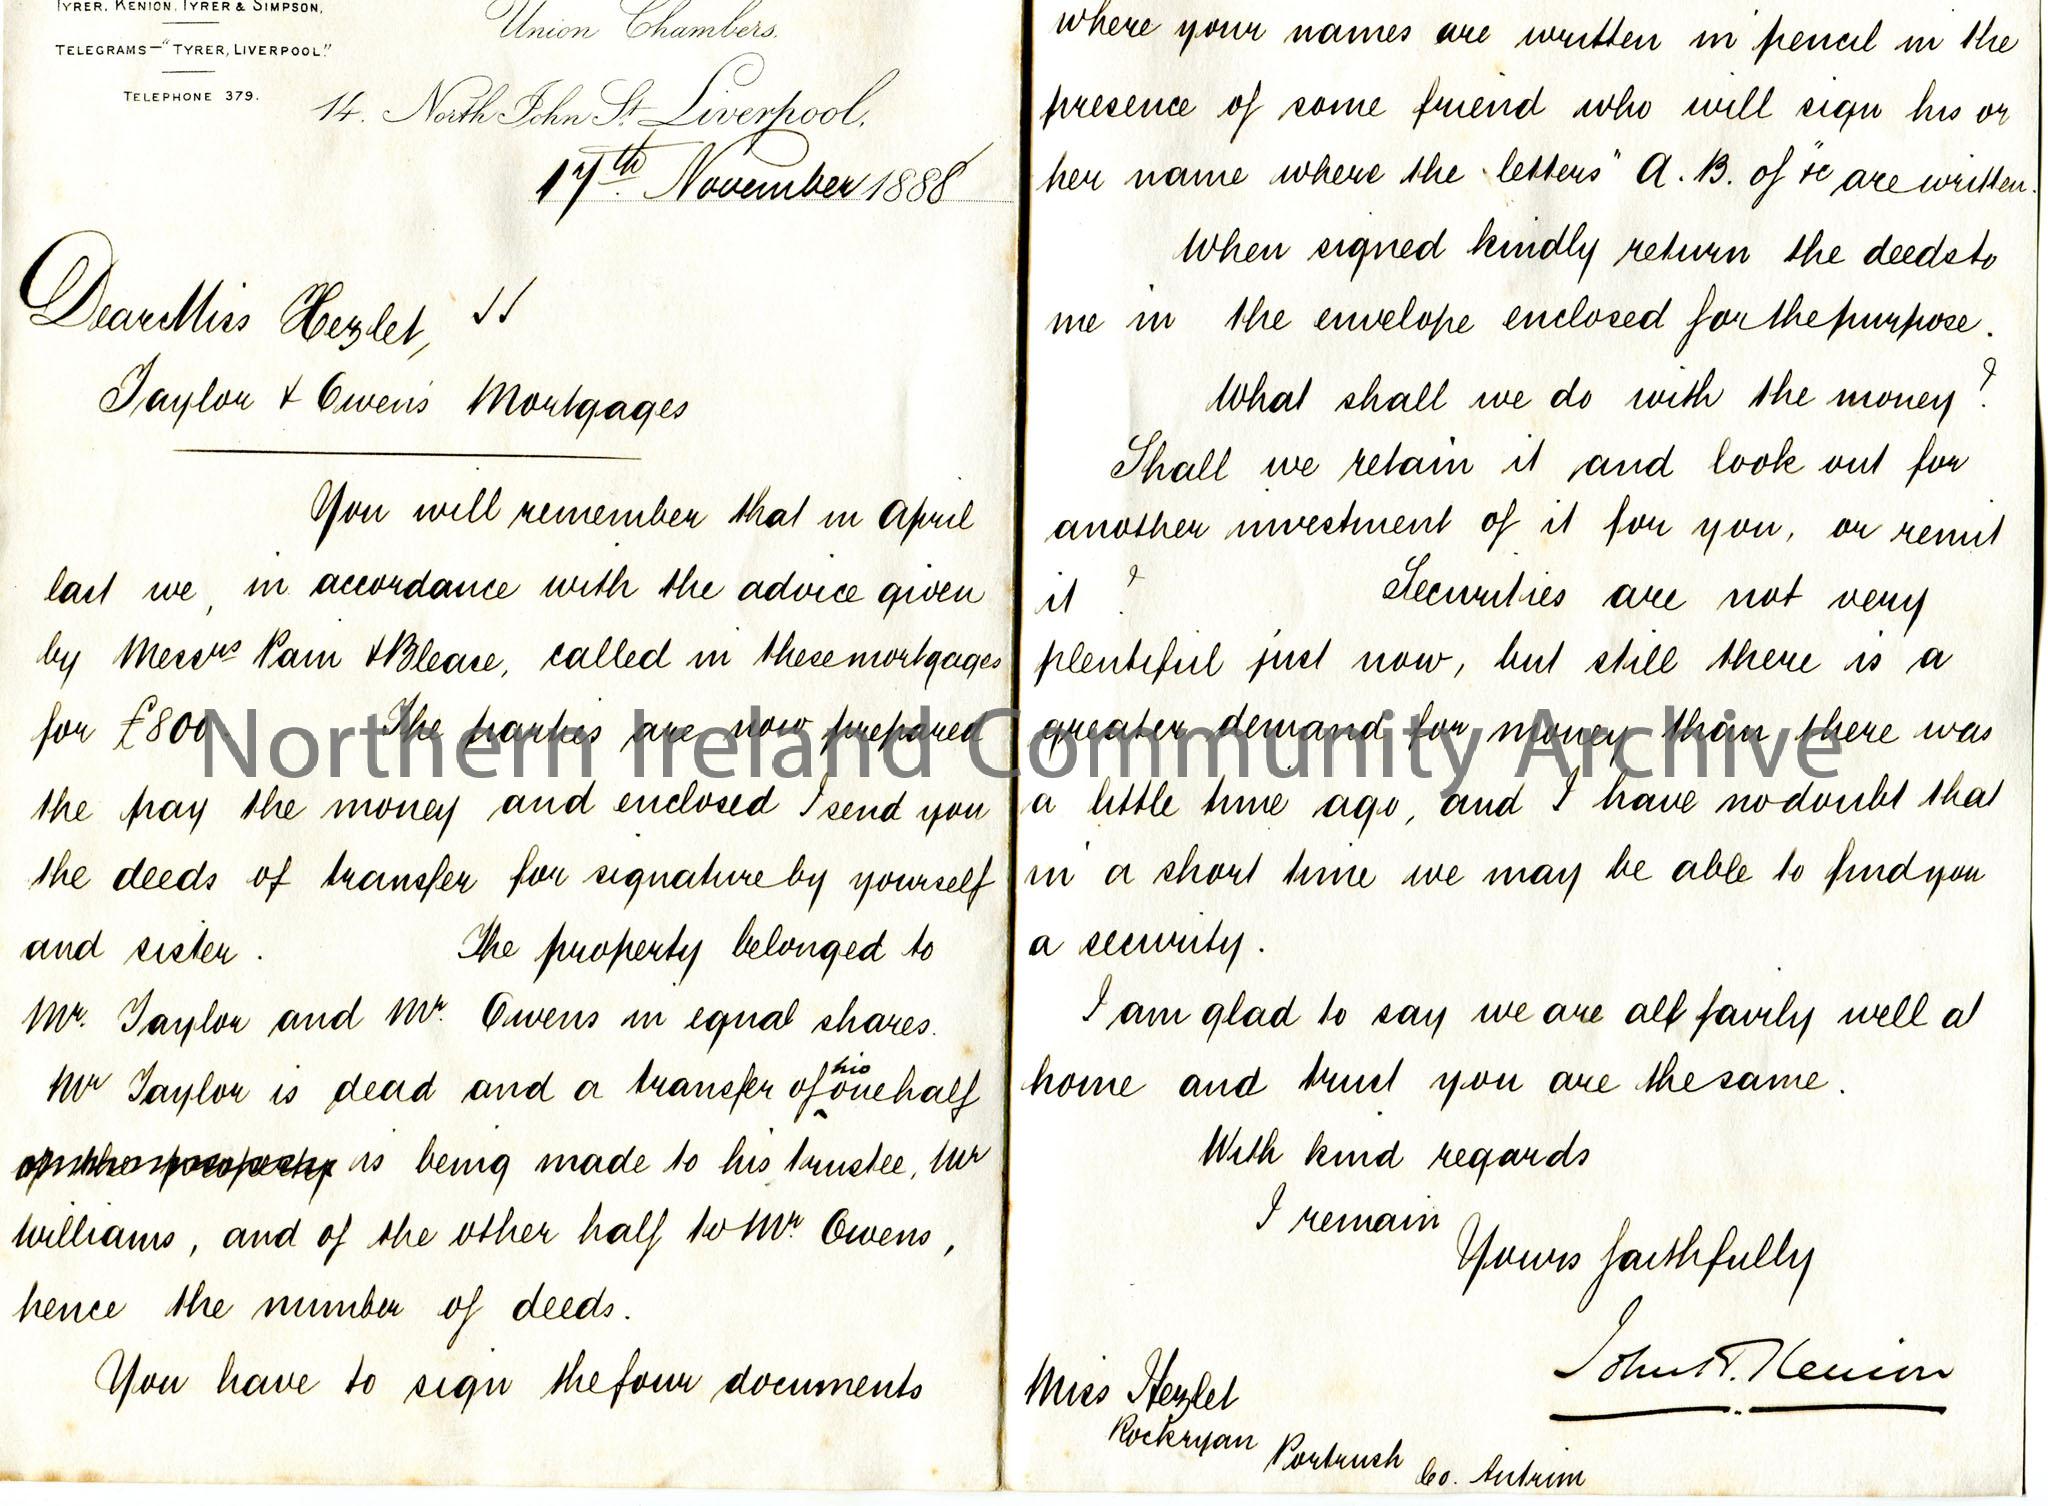 Tyrer, Kenion, Tyrer & Simpson,
Telegrams—"Tyrer, Liverpool."
Telephone 379.
Union Chambers.
14. North John St. Liverpool,
17th November 1888
Dear Miss Hezlet,
Taylor & Owens' Mortgages
You will remember that in April
last we, in accordance with the advice given
by Messrs Pain & Blease, called in these mortgages
for £800. The parties are now prepared
the pay the money and enclosed I send you
the deeds of transfer for signature by yourself
and sister. The property belonged to
Mr. Taylor and Mr. Owens in equal shares.
Mr Taylor is dead and a transfer of his one half
of the property is being made to his trustee, Mr
Williams, and of the other half to Mr. Owens,
hence the number of deeds.
You have to sign the four documents
where your names are written in pencil in the
presence of some friend who will sign his or
her name where the letters "A. B. of &c are written.
When signed kindly return the deeds to
me in the envelope enclosed for the purpose.
What shall we do with the money?
Shall we retain it and look out for
another investment of it for you, or remit
it? Securities are not very
plentiful just now, but still there is a
greater demand for money than there was
a little time ago, and I have no doubt that
in a short time we may be able to find you
a security.
I am glad to say we are all fairly well at
home and trust you are the same.
With kind regards
I remain
Yours faithfully
John T. Kenion
Miss Hezlet
Rockryan
Portrush
Co. Antrim
Northern Ireland Community Archive